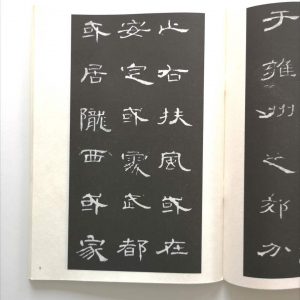 于雍州之郊分
止右扶風或在
安定或處武都
或居隴西或家